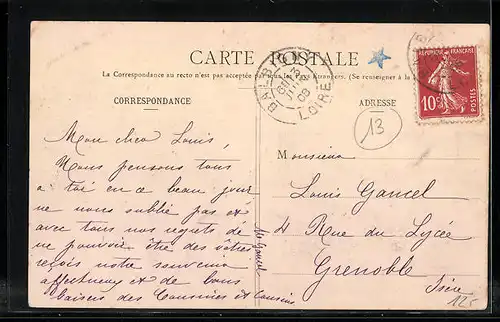 CARTE POSTALE
La Correspondance au recto n'est pas acceptée par tous les Pays Etrangers. (Se renseigner à la
CORRESPONDANCE
Mon cher Louis,
Nous pensons tous
a toi en ce beau jour
ne nous oublie pas et
avec tous nos regrets de
ne pouvoir être des vôtres
reçois notre souvenir
affectueux et de bons
baisers des Cousines et Cousins
ADRESSE
13
Monsieur
Louis Gancel
4 Rue du Lycée
Grenoble
Isère
125
LOIRE
REPUBLIQUE FRANÇAISE
10c
POSTES